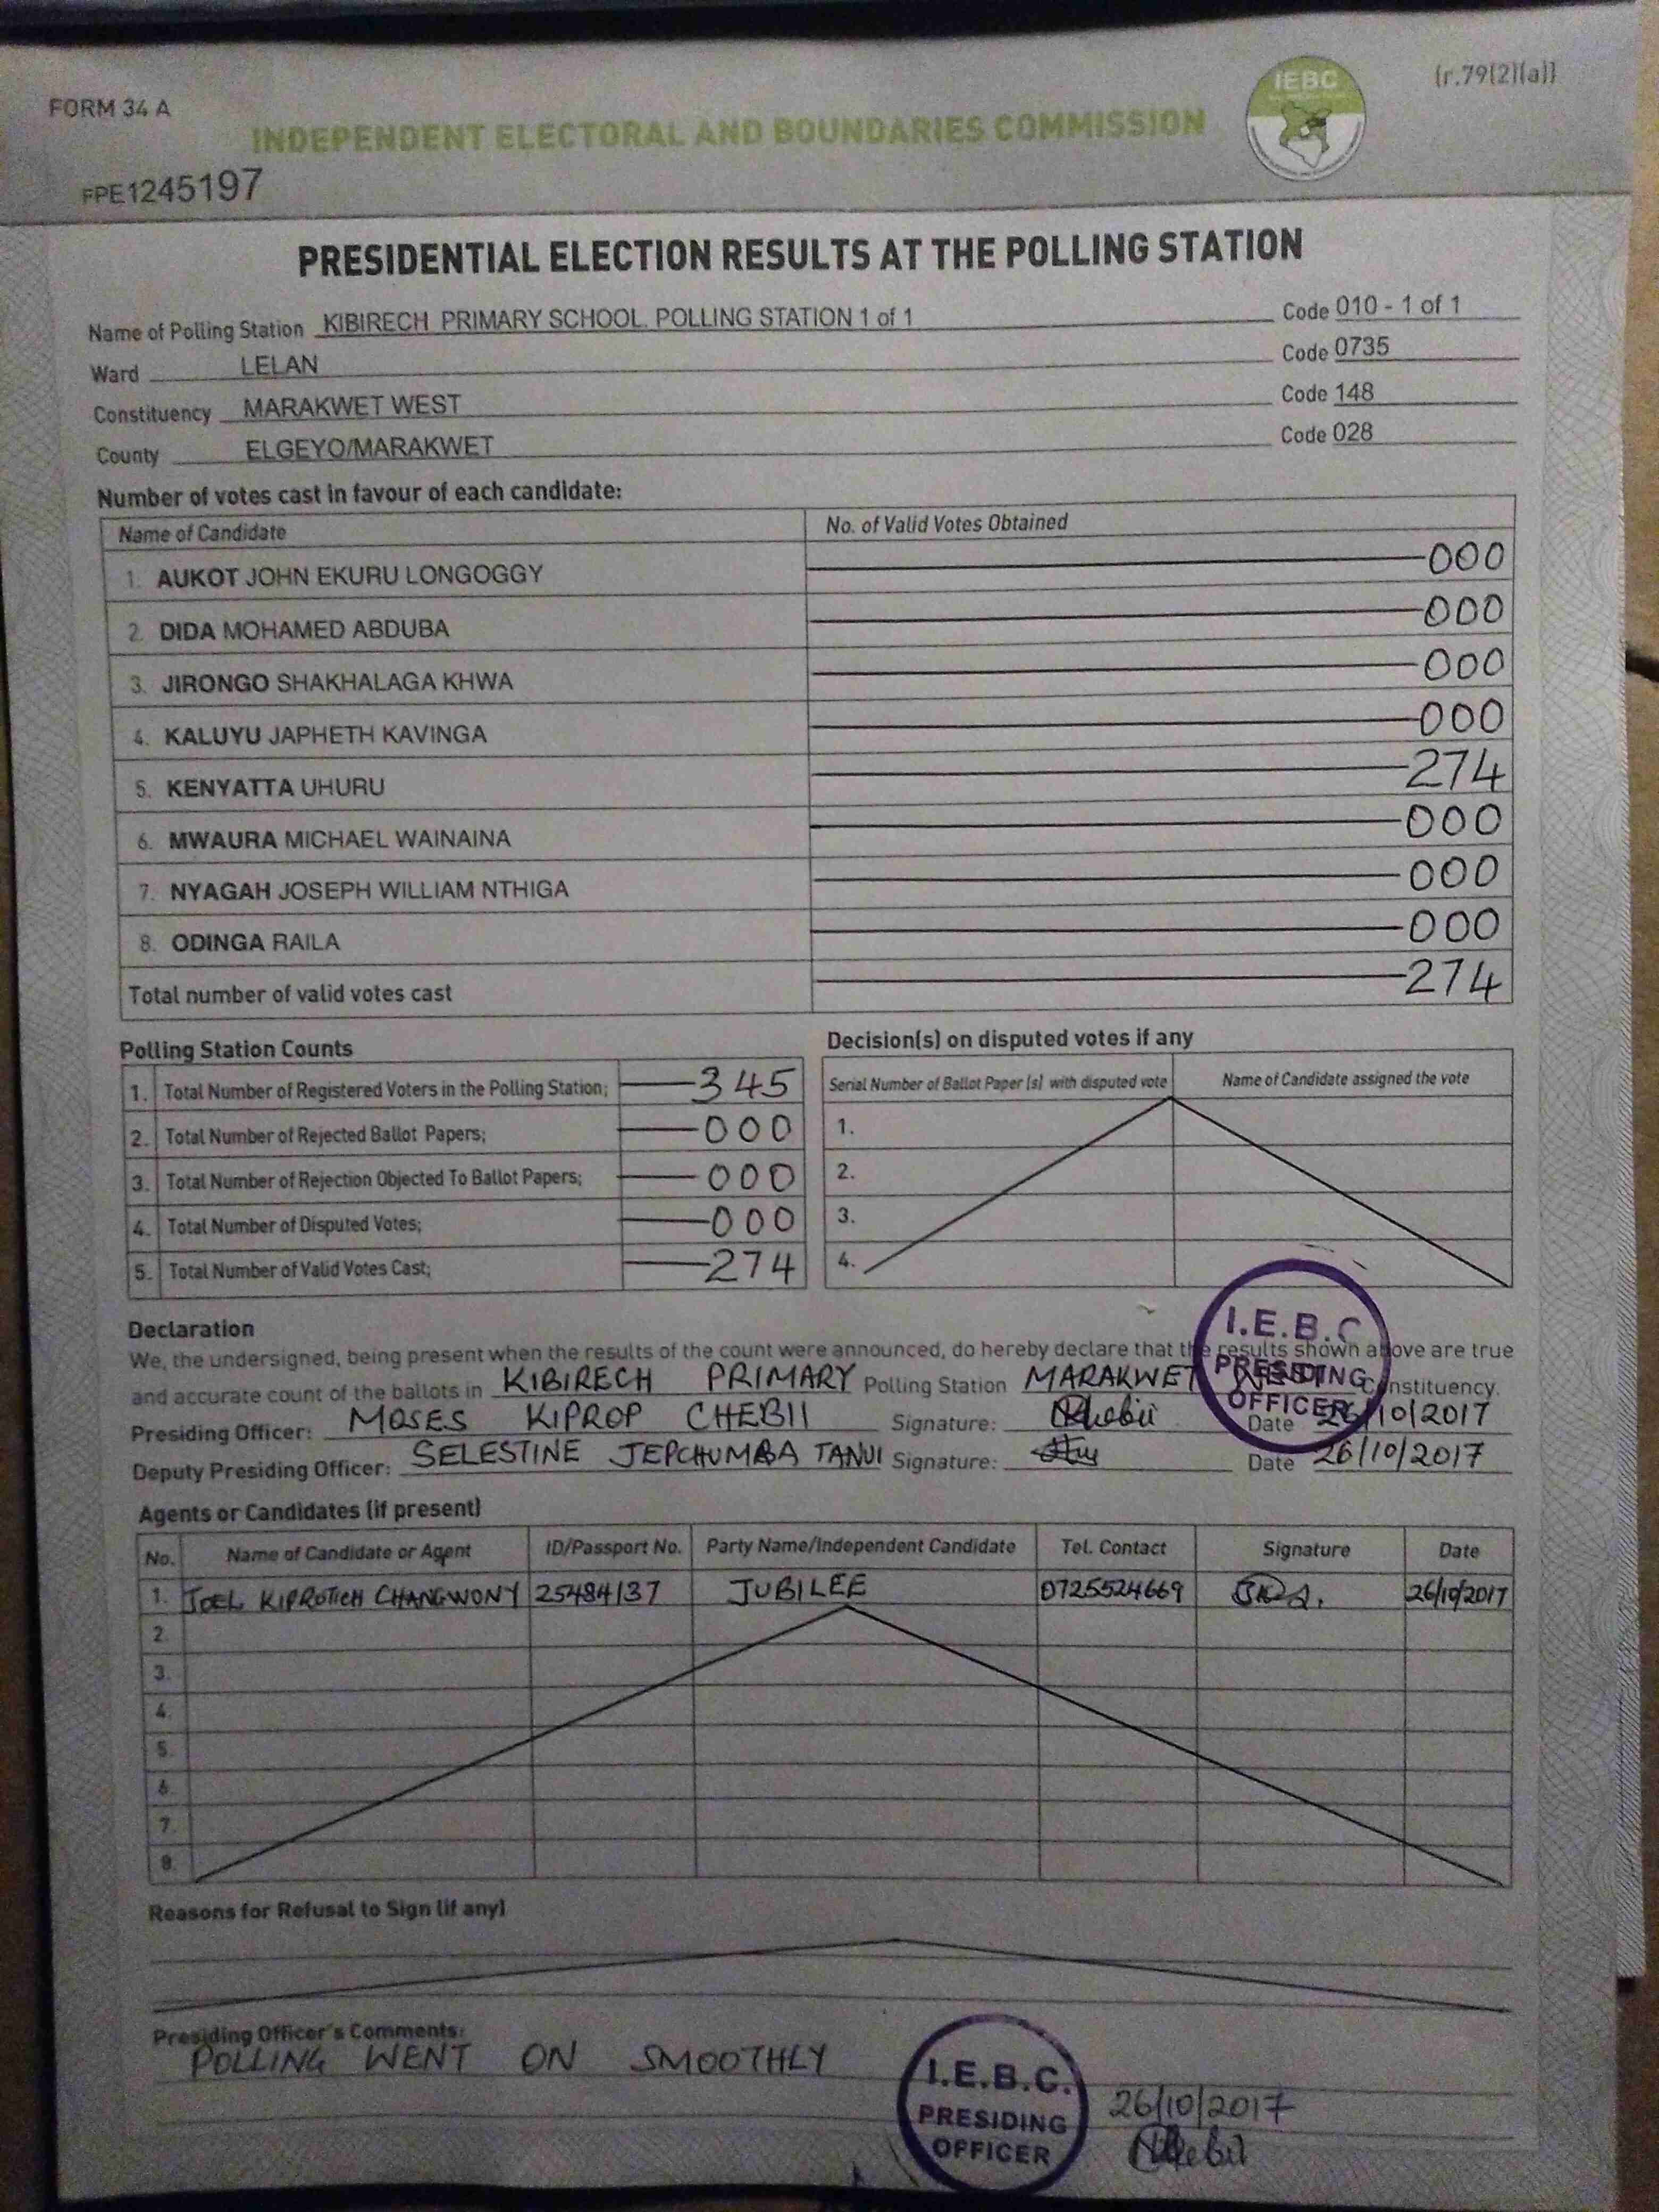 (r.79(2)(a))
FORM 34 A
IEBC
INDEPENDENT ELECTORAL AND BOUNDARIES COMMISSION
FPE1245197
PRESIDENTIAL ELECTION RESULTS AT THE POLLING STATION
Name of Polling Station KIBIRECH PRIMARY SCHOOL. POLLING STATION 1 of 1 Code 010 - 1 of 1
Ward LELAN Code 0735
Constituency MARAKWET WEST Code 148
County ELGEYO/MARAKWET Code 028
Number of votes cast in favour of each candidate:
Name of Candidate No. of Valid Votes Obtained
1. AUKOT JOHN EKURU LONGOGGY 000
2. DIDA MOHAMED ABDUBA 000
3. JIRONGO SHAKHALAGA KHWA 000
4. KALUYU JAPHETH KAVINGA 000
5. KENYATTA UHURU 274
6. MWAURA MICHAEL WAINAINA 000
7. NYAGAH JOSEPH WILLIAM NTHIGA 000
8. ODINGA RAILA 000
Total number of valid votes cast 274
Polling Station Counts
1. Total Number of Registered Voters in the Polling Station; 345
2. Total Number of Rejected Ballot Papers; 000
3. Total Number of Rejection Objected To Ballot Papers; 000
4. Total Number of Disputed Votes; 000
5. Total Number of Valid Votes Cast; 274
Decision(s) on disputed votes if any
Serial Number of Ballot Paper (s) with disputed vote Name of Candidate assigned the vote
1.
2.
3.
4.
I.E.B.C
PRESIDING
OFFICER
Declaration
We, the undersigned, being present when the results of the count were announced, do hereby declare that the results shown above are true
and accurate count of the ballots in KIBIRECH PRIMARY Polling Station MARAKWET WEST Constituency.
Presiding Officer: MOSES KIPROP CHEBII Signature: Date 26/10/2017
Deputy Presiding Officer: SELESTINE JEPCHUMBA TANUI Signature: Date 26/10/2017
Agents or Candidates (if present)
No. Name of Candidate or Agent ID/Passport No. Party Name/Independent Candidate Tel. Contact Signature Date
1. JOEL KIPROTICH CHANGWONY 25484137 JUBILEE 0725524669 26/10/2017
2.
3.
4.
5.
6.
7.
8.
Reasons for Refusal to Sign (if any)
Presiding Officer's Comments:
POLLING WENT ON SMOOTHLY
I.E.B.C.
PRESIDING
OFFICER
26/10/2017